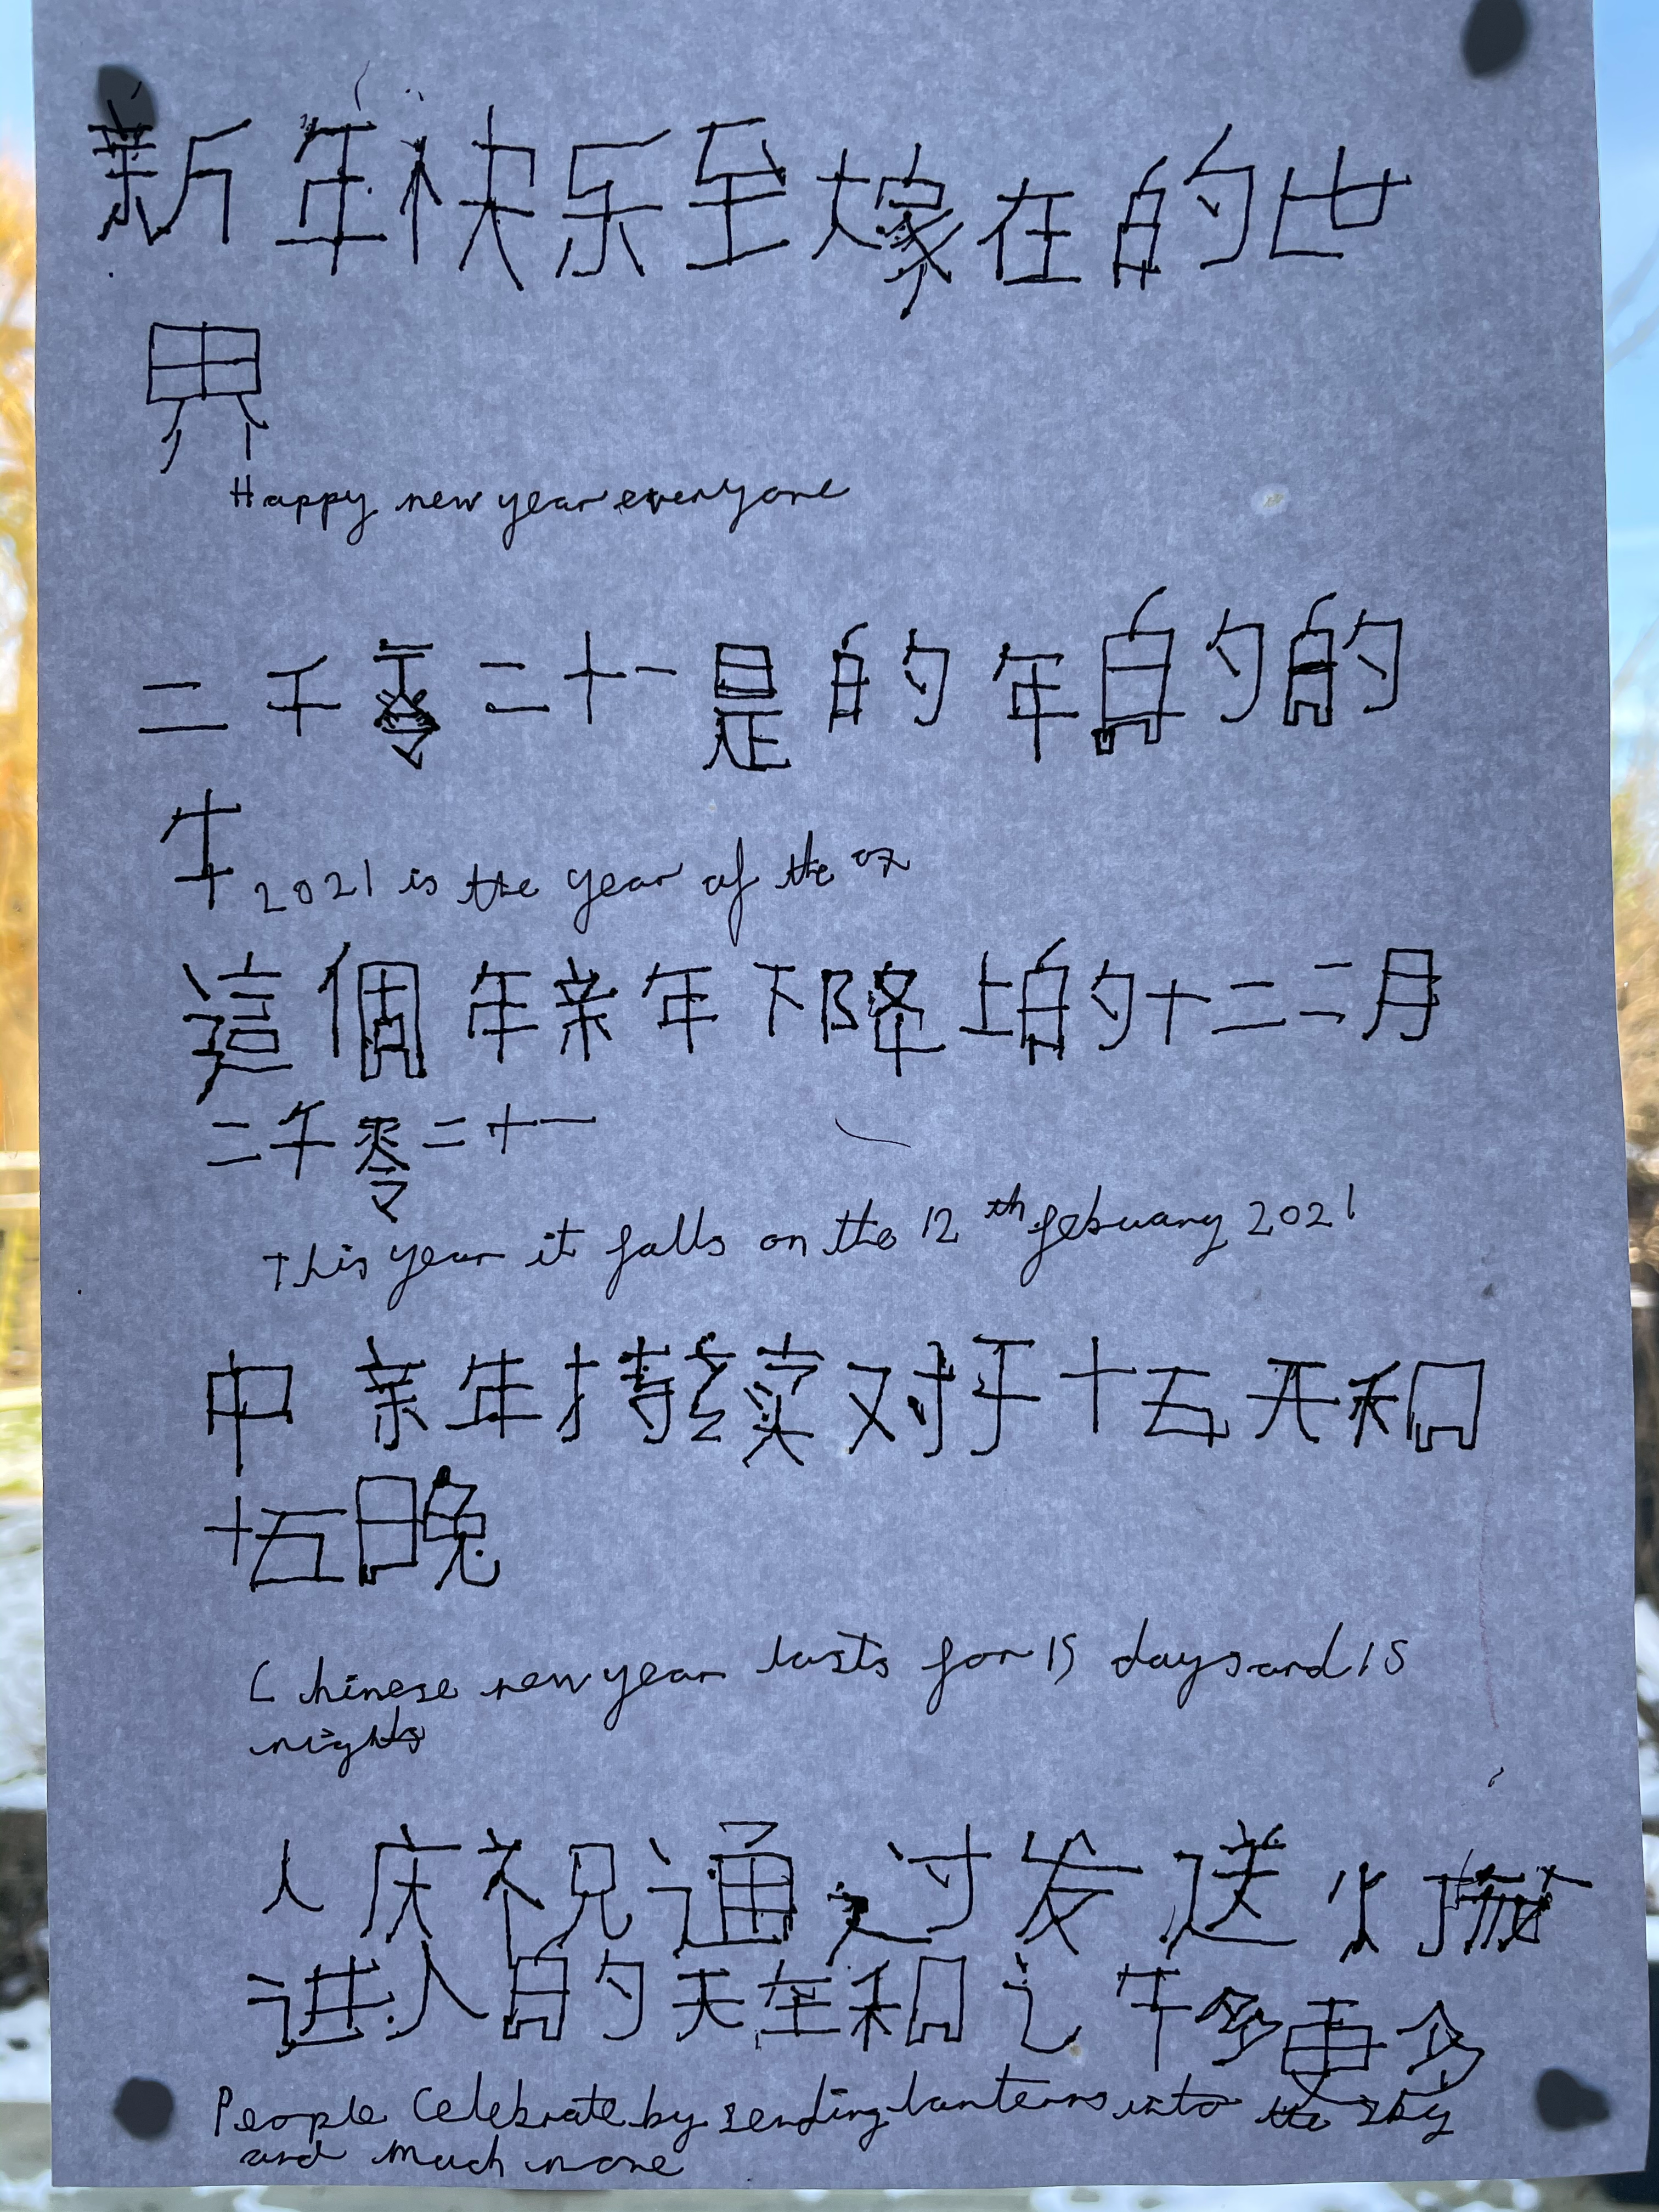 新年快乐至嫁在的世
界
Happy new year everyone
二千零二十一是的年的的
牛 2021 is the year of the ox
這個年亲年下降上的十二二月
二千零二十一
This year it falls on the 12th febuary 2021
中亲年持续对于十五天和
十五日晚
Chinese new year lasts for 15 days and 15
nights
人庆祝通过发送灯
进入的天空和许多更多
People Celebrate by sending lanterns into the sky
and much more